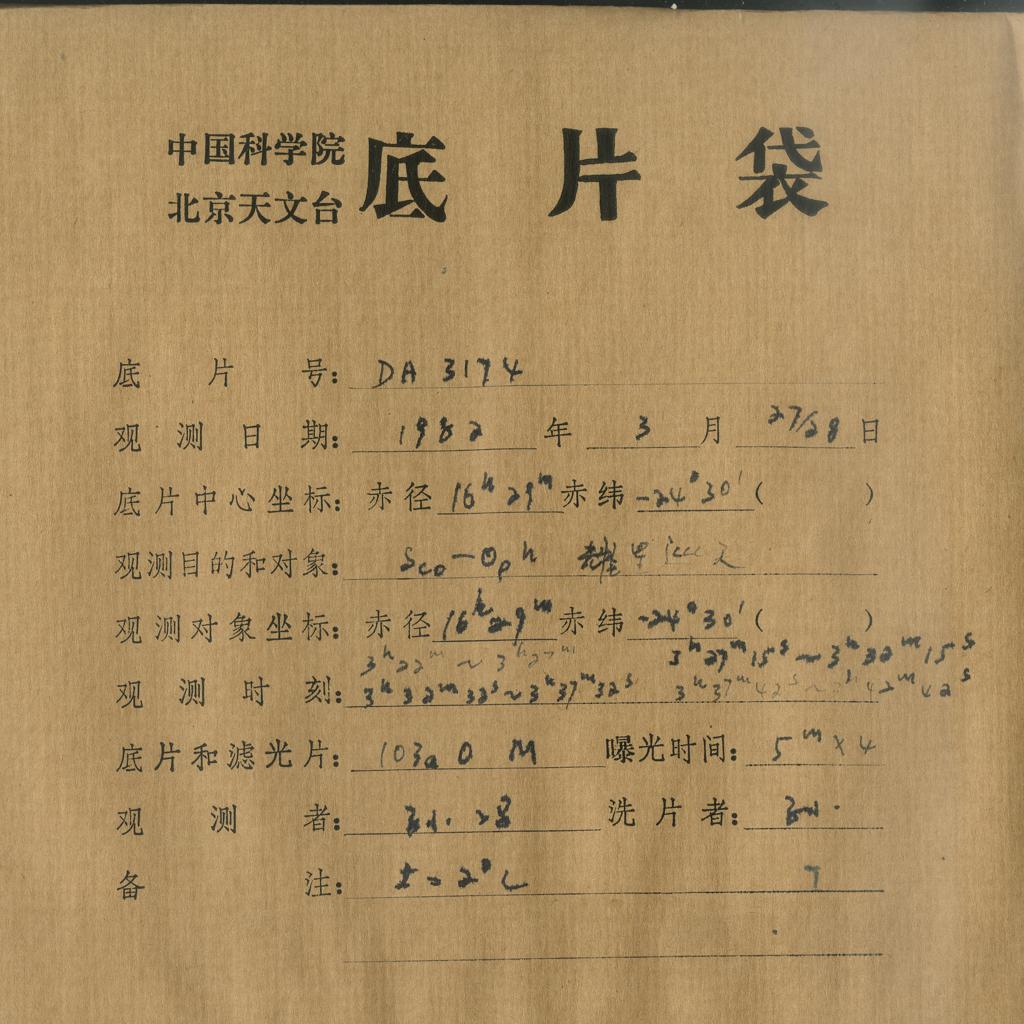 中国科学院
北京天文台
底片袋
底片号: DA 3174
观测日期: 1982 年 3 月 27/28 日
底片中心坐标: 赤径 16ʰ 29ᵐ 赤纬 -24° 30′ ( )
观测目的和对象: Sco-Oph 耀
观测对象坐标: 赤径 16ʰ 29ᵐ 赤纬 -24° 30′ ( )
3ʰ22ᵐ ~ 3ʰ27ᵐ 3ʰ27ᵐ15ˢ ~ 3ʰ32ᵐ15ˢ
观测时刻: 3ʰ32ᵐ32ˢ ~ 3ʰ37ᵐ32ˢ 3ʰ37ᵐ42ˢ ~ 3ʰ42ᵐ42ˢ
底片和滤光片: 103a O M 曝光时间: 5ᵐ × 4
观测者: 洗片者:
备注: t = 2°C